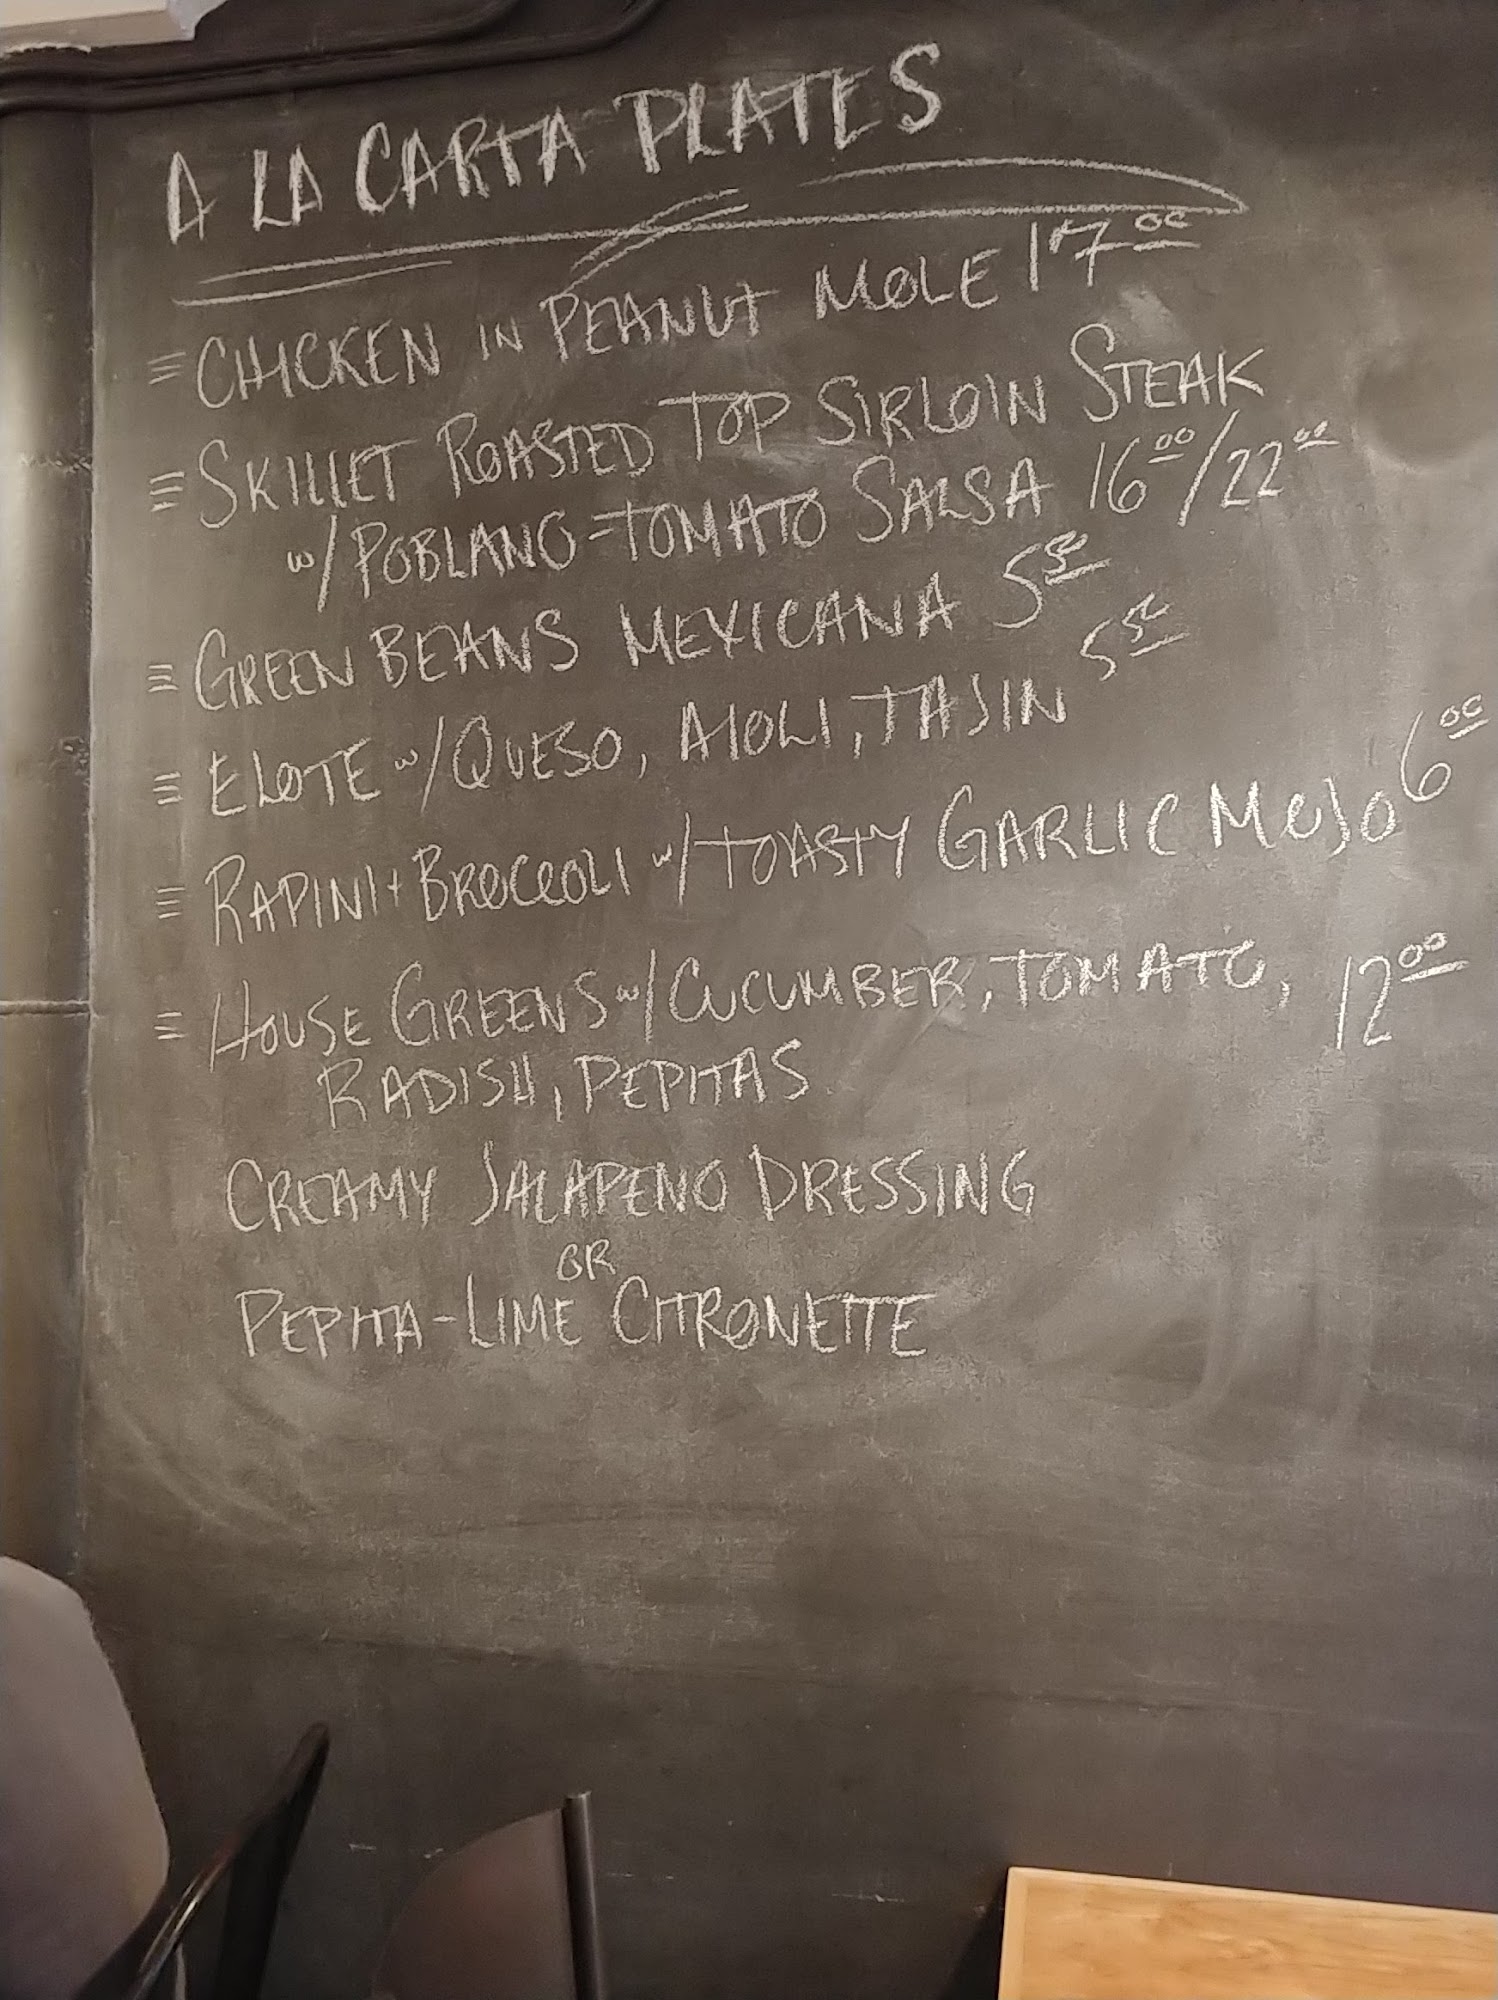 A LA CARTA PLATES
≡ CHICKEN IN PEANUT MOLE 17 00
≡ SKILLET ROASTED TOP SIRLOIN STEAK
w/ POBLANO-TOMATO SALSA 16 00 / 22 00
≡ GREEN BEANS MEXICANA 5 50
≡ ELOTE w/ QUESO, AIOLI, TAJIN 5 50
≡ RAPINI + BROCCOLI w/ TOASTY GARLIC MOJO 6 00
≡ HOUSE GREENS w/ CUCUMBER, TOMATO, 12 00
RADISH, PEPITAS
CREAMY JALAPENO DRESSING
OR
PEPITA-LIME CITRONETTE